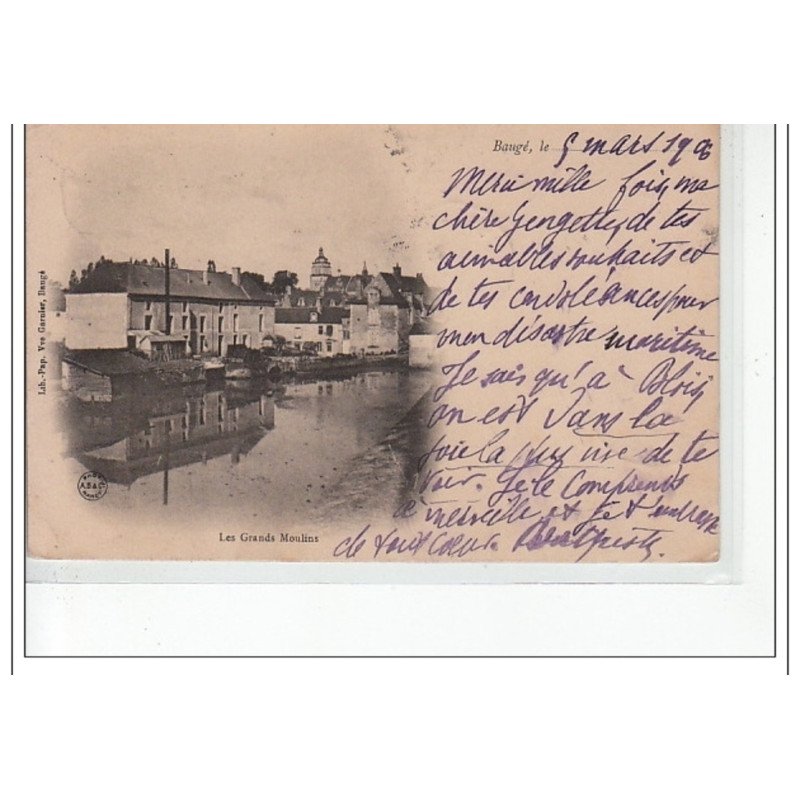 Baugé, le 5 mars 190
Merci mille fois, ma
chère Gengette, de tes
aimables souhaits et
de tes condoléances pour
mon désastre maritime
Je sais qu'à Blois,
on est dans la
joie la plus vive de te
voir. Je le comprends
à merveille et je t'embrasse
de tout coeur.
Lib.-Pap. Vve Garnier, Baugé
Les Grands Moulins